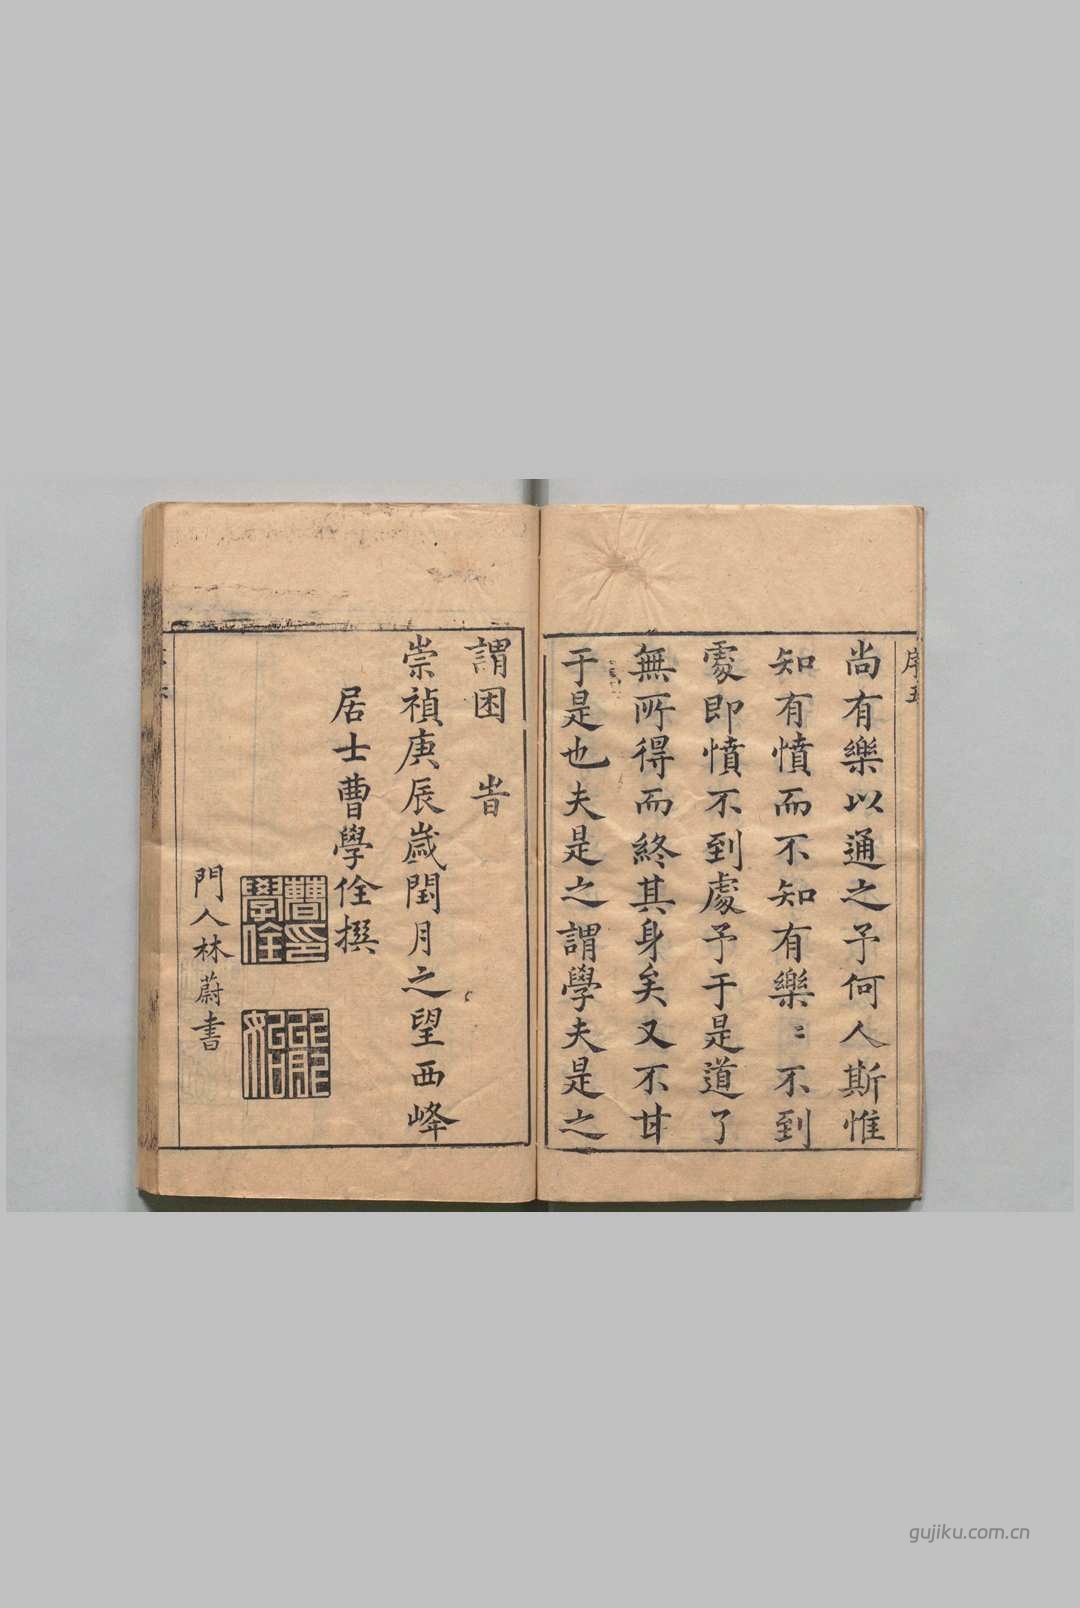 序五
尚有樂以通之予何人斯惟
知有憤而不知有樂〻不到
處即憤不到處予于是道了
無所得而終其身矣又不甘
于是也夫是之謂學夫是之
謂困 旹
崇禎庚辰歲閏月之望西峰
居士曹學佺撰
曹印學佺
門人林蔚書
gujiku.com.cn